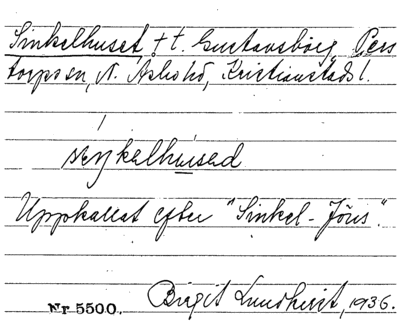 Sinkelhuset, † t. Gustavsborg Pers
torps sn, N. Åsbo hd, Kristianstads l.
siŋkəlhu̲səd
Uppkallat efter "Sinkel-Jöns".
Nr 5500. Birgit Lundkvist, 1936.